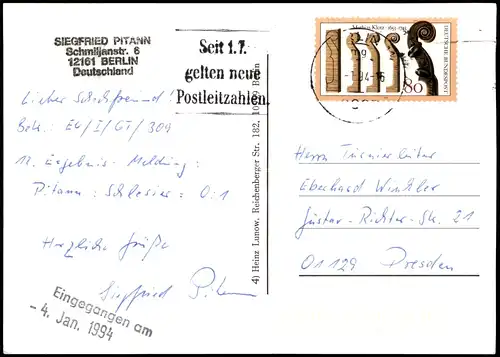 SIEGFRIED PITANN
Schmiljanstr. 6
12161 BERLIN
Deutschland
Seit 1.7.
gelten neue
Postleitzahlen.
Mathias Klotz 1653-1743
DEUTSCHE BUNDESPOST
80
Lieber Schachfreund!
Betr.: EU/I/GT/304
12. Ergebnis-Meldung:
Pitann : Schlesier : 0:1
Herzliche Grüße
Siegfried Pitann
Eingegangen am
- 4. Jan. 1994
4) Heinz Lunow, Reichenberger Str. 182, Berlin
Herrn Turnierleiter
Eberhard Winkler
Gustav-Richter-Str. 21
01129 Dresden